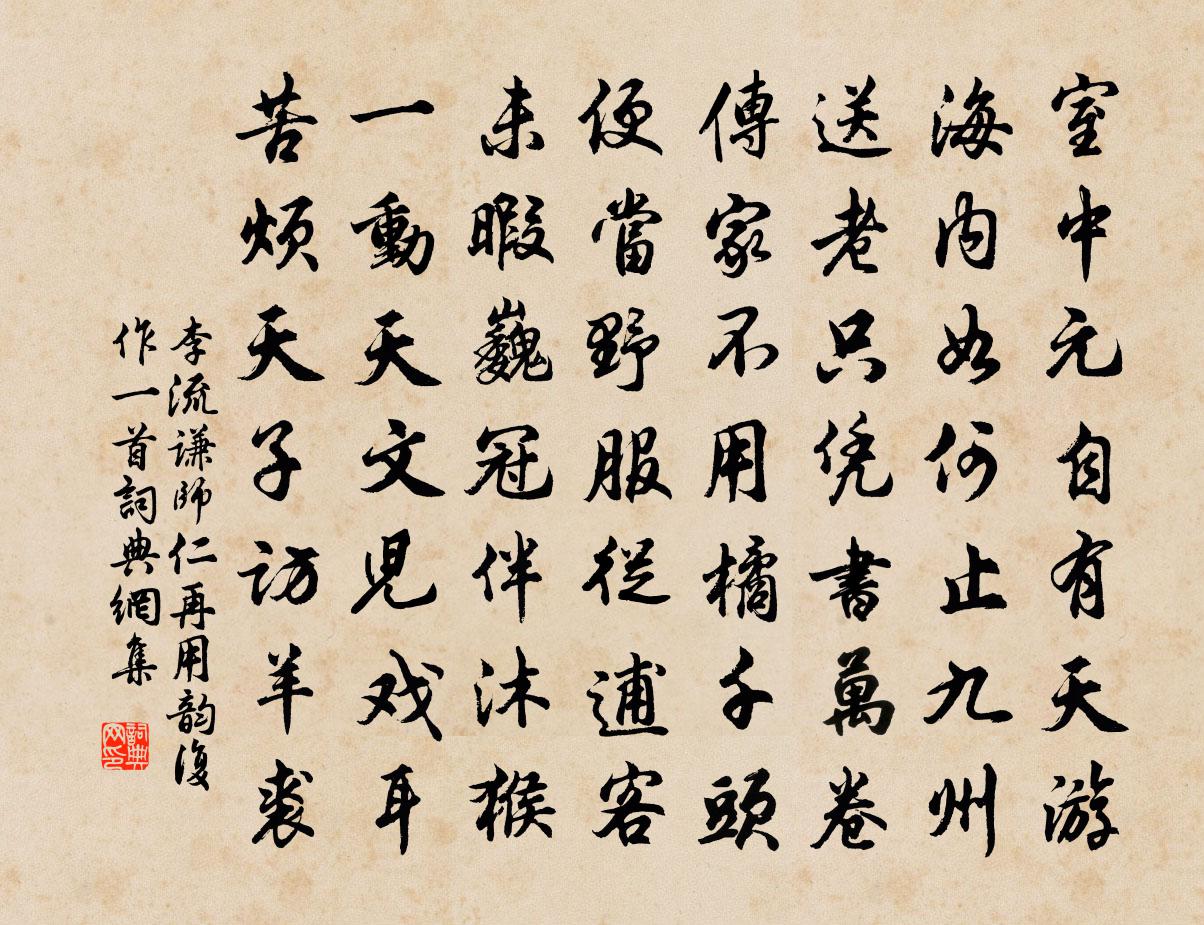 室中元自有天游
海内如何止九州
送老只凭書萬卷
傳家不用橘千頭
便當野服從逋客
未暇巍冠伴沐猴
一動天文児戏耳
苦煩天子訪羊裘
李流謙師仁再用韵復
作一首詞典網集
詞典网印